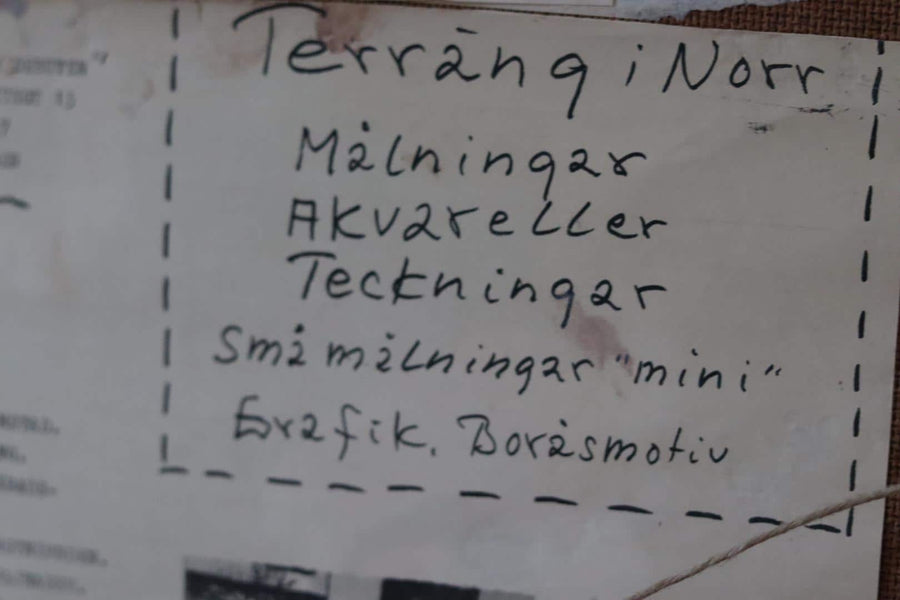 Terräng i Norr
Målningar
Akvareller
Teckningar
Små målningar "mini"
Grafik. Boråsmotiv